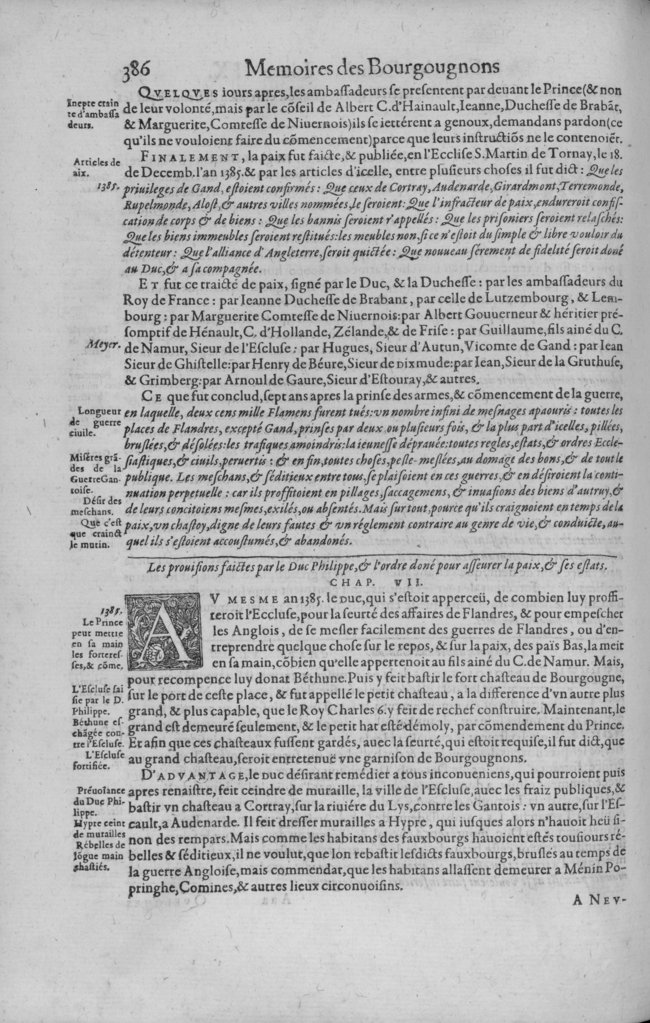 386 Memoires des Bourgougnons
QVELQVES iours apres, les ambassadeurs se presentent par deuant le Prince (& non
de leur volonté, mais par le cõseil de Albert C. d'Hainault, Ieanne, Duchesse de Brabãt,
& Marguerite, Comtesse de Niuernois) ils se iettérent a genoux, demandans pardon (ce
qu'ils ne vouloient faire du cõmencement) parce que leurs instructiõs ne le contenoiẽt.
Inepte crain
te d'ambassa
deurs.
FINALEMENT, la paix fut faicte, & publiée, en l'Ecclise S. Martin de Tornay, le 18.
de Decemb. l'an 1385. & par les articles d'icelle, entre plusieurs choses il fut dict: Que les
priuileges de Gand, estoient confirmés: Que ceux de Cortray, Audenarde, Girardmont, Terremonde,
Rupelmonde, Alost, & autres villes nommées, le seroient: Que l'infracteur de paix, endureroit confis-
cation de corps & de biens: Que les bannis seroient r'appellés: Que les prisoniers seroient relaschés:
Que les biens immeubles seroient restitués: les meubles non, si ce n'estoit du simple & libre vouloir du
détenteur: Que l'alliance d'Angleterre, seroit quictée: Que nouueau sérement de fidelité seroit doné
au Duc, & a sa compagnée.
Articles de
aix.
1385.
ET fut ce traicté de paix, signé par le Duc, & la Duchesse: par les ambassadeurs du
Roy de France: par Ieanne Duchesse de Brabant, par celle de Lutzembourg, & Lem-
bourg: par Marguerite Comtesse de Niuernois: par Albert Gouuerneur & héritier pré-
somptif de Hénault, C. d'Hollande, Zélande, & de Frise: par Guillaume, fils ainé du C.
de Namur, Sieur de l'Escluse: par Hugues, Sieur d'Autun, Vicomte de Gand: par Iean
Sieur de Ghistelle: par Henry de Béure, Sieur de Dixmude: par Iean, Sieur de la Gruthuse,
& Grimberg: par Arnoul de Gaure, Sieur d'Estouray, & autres.
Meyer.
CE que fut conclud, sept ans apres la prinse des armes, & cõmencement de la guerre,
en laquelle, deux cens mille Flamens furent tués: vn nombre infini de mesnages apauuris: toutes les
places de Flandres, excepté Gand, prinses par deux ou plusieurs fois, & la plus part d'icelles, pillées,
bruslées, & désolées: les trafiques amoindris: la ieunesse déprauée: toutes regles, estats, & ordres Eccle-
siastiques, & ciuils, peruertis: & en fin, toutes choses, pesle-meslées, au domage des bons, & de toute le
publique. Les meschans, & séditieux entre tous, se plaisoient en ces guerres, & en désiroient la conti-
nuation perpetuelle: car ils proffitoient en pillages, saccagemens, & inuasions des biens d'autruy, &
de leurs concitoiens mesmes, exilés, ou absentés. Mais sur tout, pource qu'ils craignoient en temps de la
paix, vn chastoy, digne de leurs fautes & vn réglement contraire au genre de vie, & conduicte, au-
quel ils s'estoient accoustumés, & abandonés.
Longueur
de guerre
ciuile.
Misères grã-
des de la
Guerre Gan-
toise.
Désir des
meschans.
Que c'est
que crainct
le mutin.
Les prouisions faictes par le Duc Philippe, & l'ordre doné pour asseurer la paix, & ses estats.
CHAP. VII.
AV MESME an 1385. le Duc, qui s'estoit apperceü, de combien luy proffi-
teroit l'Eccluse, pour la seurté des affaires de Flandres, & pour empescher
les Anglois, de se mesler facilement des guerres de Flandres, ou d'en-
treprendre quelque chose sur le repos, & sur la paix, des païs Bas, la meit
en sa main, cõbien qu'elle appertenoit au fils ainé du C. de Namur. Mais,
pour recompence luy donat Béthune. Puis y feit bastir le fort chasteau de Bourgougne,
sur le port de ceste place, & fut appellé le petit chasteau, a la difference d'vn autre plus
grand, & plus capable, que le Roy Charles 6. y feit de rechef construire. Maintenant, le
grand est demeuré seulement, & le petit hat esté démoly, par cõmendement du Prince.
Et afin que ces chasteaux fussent gardés, auec la seurté, qui estoit requise, il fut dict, que
au grand chasteau, seroit entretenuë vne garnison de Bourgougnons.
1385.
Le Prince
peut mettre
en sa main
les forteres-
ses, & cõme.
L'Escluse sai
sie par le D.
Philippe.
Béthune es-
chãgée con-
tre l'Escluse.
L'Escluse
fortifiée.
D'ADVANTAGE, le duc désirant remédier a tous inconueniens, qui pourroient puis
apres renaistre, feit ceindre de muraille, la ville de l'Escluse, auec les fraiz publiques, &
bastir vn chasteau a Cortray, sur la riuiére du Lys, contre les Gantois: vn autre, sur l'Es-
cault, a Audenarde. Il feit dresser murailles a Hypre, qui iusques alors n'hauoit heü si-
non des rempars. Mais comme les habitans des fauxbourgs hauoient estés tousiours ré-
belles & séditieux, il ne voulut, que lon rebastit lesdicts fauxbourgs, bruslés au temps de
la guerre Angloise, mais commendat, que les habitans allassent demeurer a Ménin Po-
pringhe, Comines, & autres lieux circonuoisins.
Préuoiance
du Duc Phi-
lippe.
Hypre ceint
de murailles
Rébelles de
lõgue main
chastiés.
A NEV-